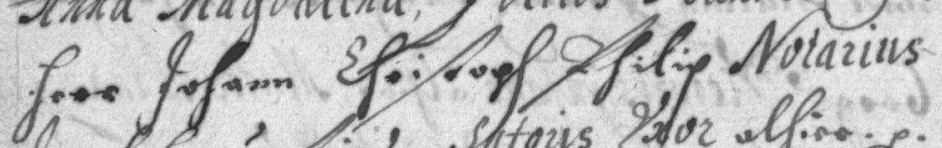 Anna Magdalena,
Herr Johann Christoph Philip Notarius
Uxor alhier. p.